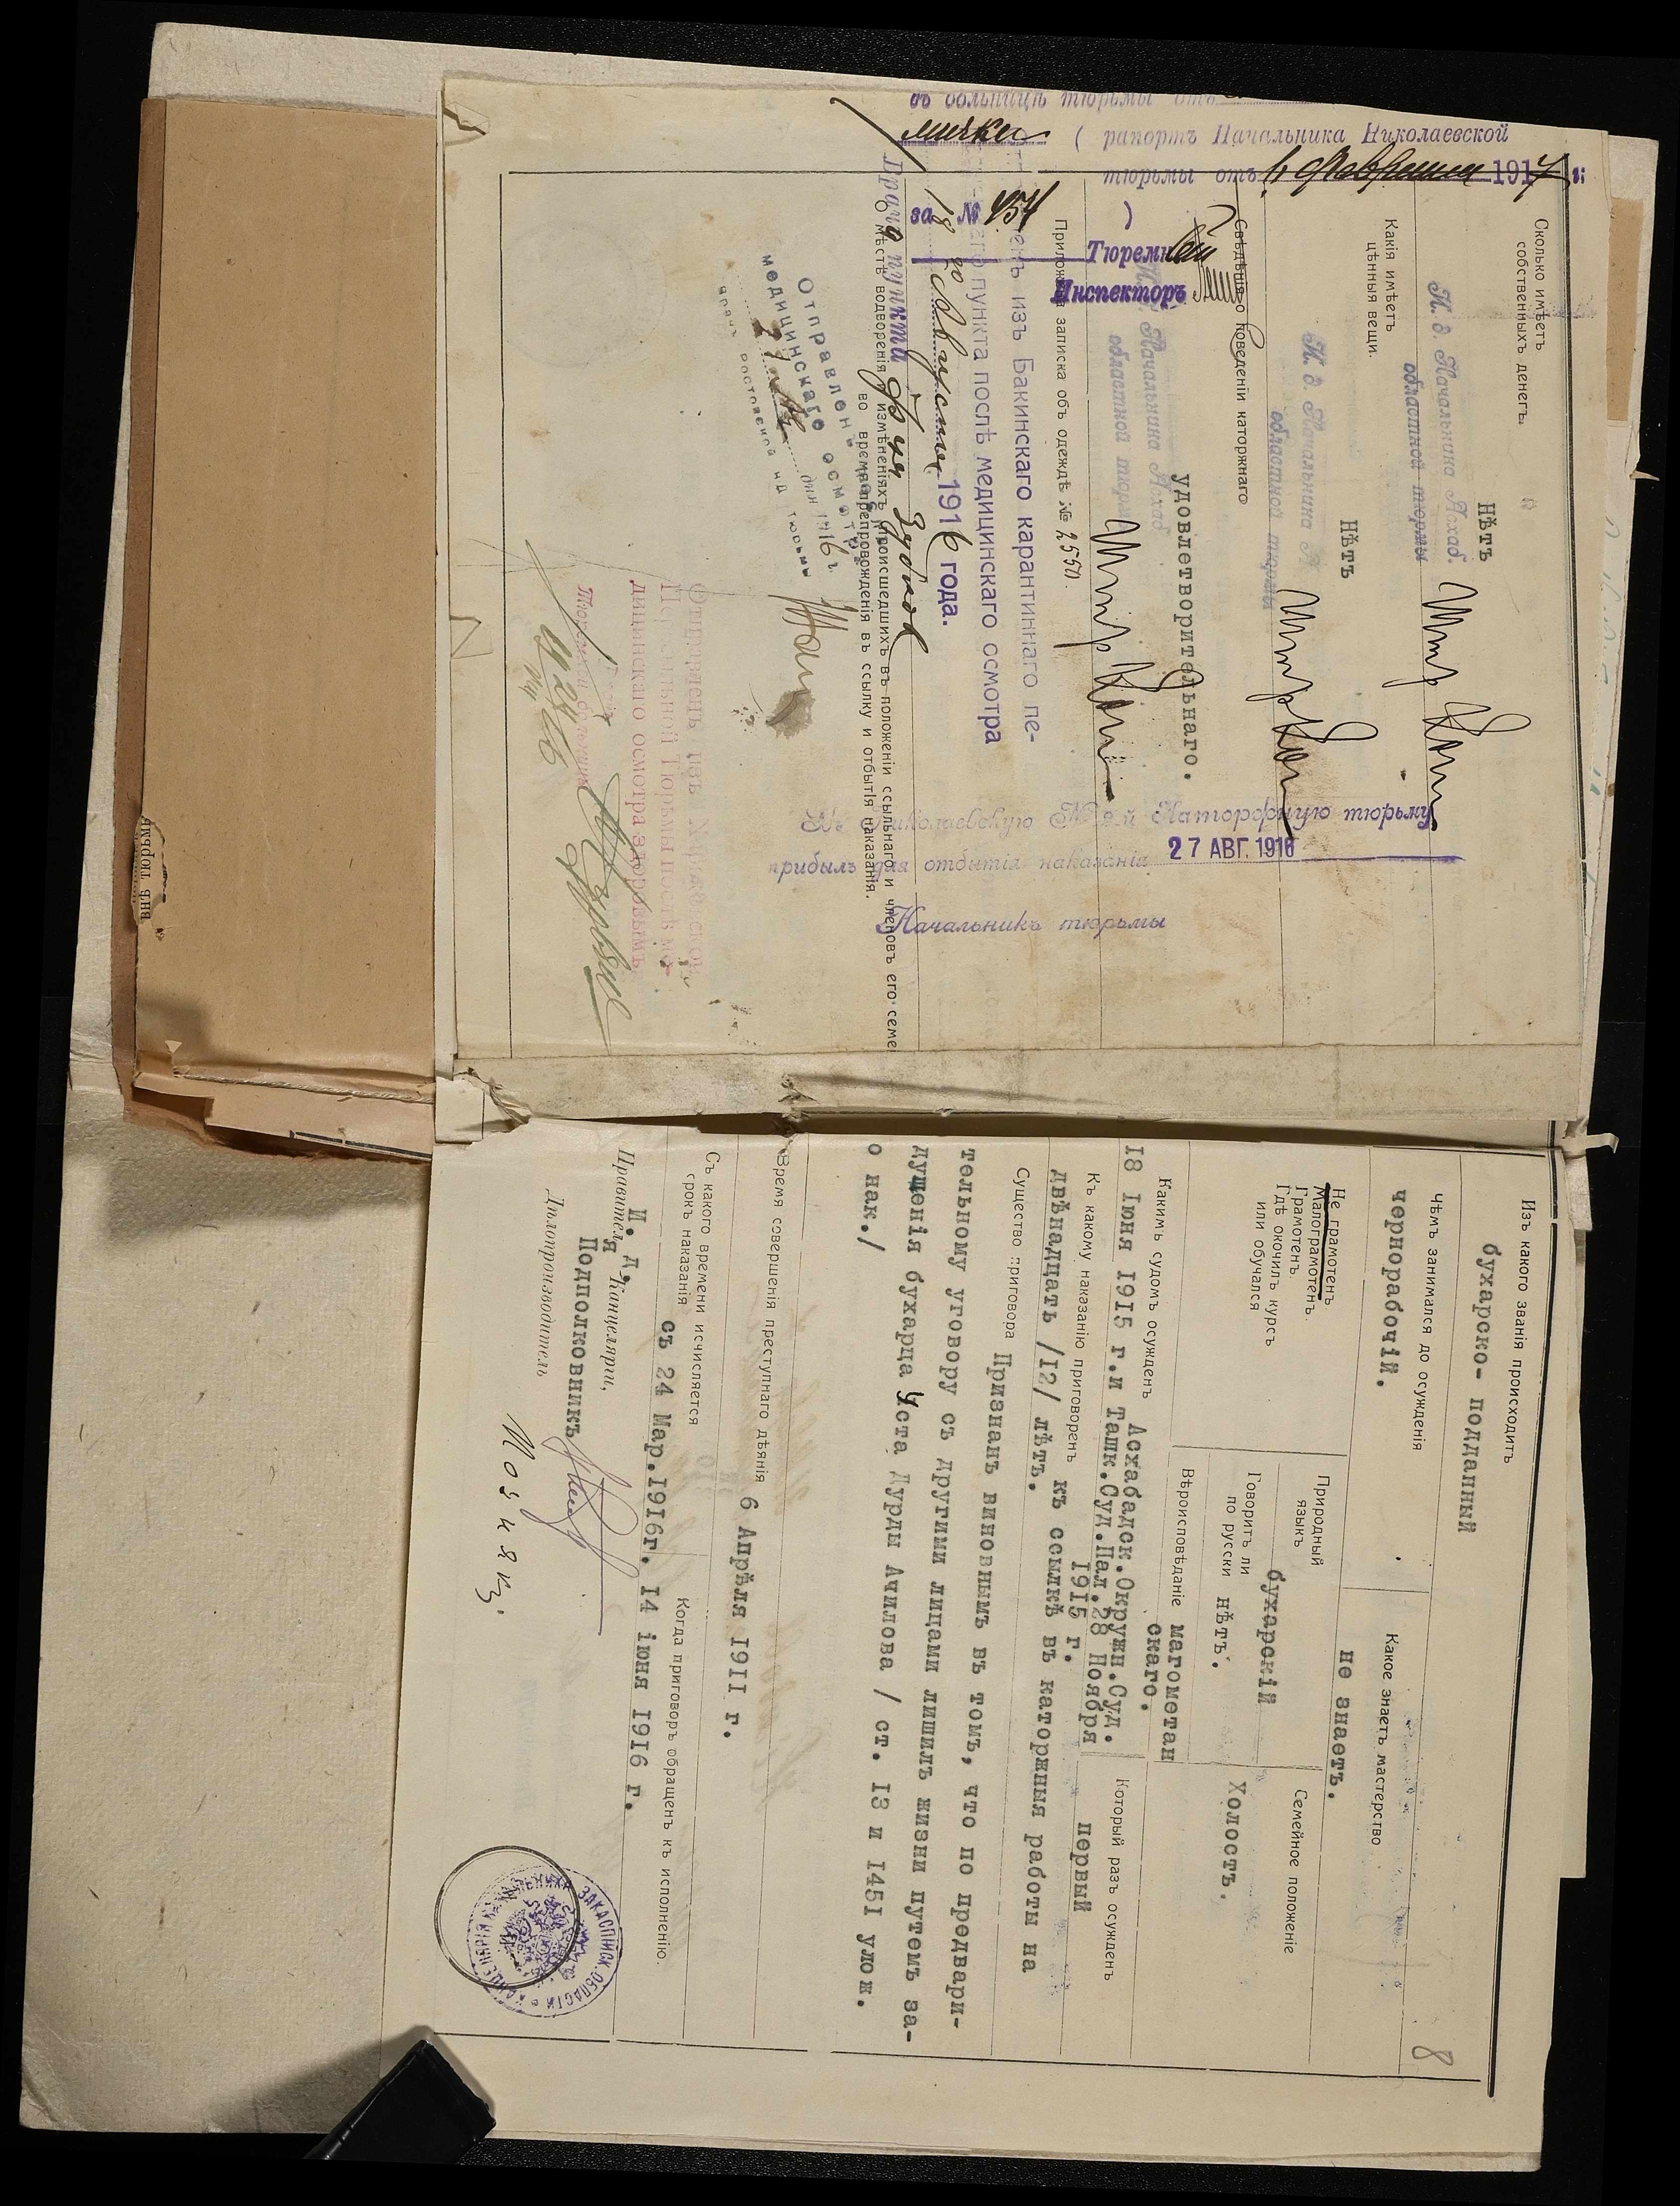 въ больницѣ тюрьмы отъ
( рапортъ Начальника Николаевской
тюрьмы отъ 6 февраля 1917 г.
за №
Тюремный
Инспекторъ
Сколько имѣетъ
собственныхъ денегъ.
НѢТЪ
И. д. Начальника Асхаб.
областной тюрьмы
Какія имѣетъ
цѣнныя вещи.
НѢТЪ
И. д. Начальника А
областной тюрьмы
Свѣдѣнія о поведеніи каторжнаго
удовлетворительнаго.
Начальника Асхаб
областной тюрьмы
Приложена записка объ одеждѣ № 2550.
изъ Бакинскаго карантиннаго пе-
пункта послѣ медицинскаго осмотра
18 го Августа 1916 года.
Врачъ пункта
О мѣстѣ водворенія измѣненіяхъ происшедшихъ въ положеніи ссыльнаго и членовъ его семе
во время препровожденія въ ссылку и отбытія наказанія.
Отправленъ
медицинскаго осмотра
1916 г.
Врачъ Ростовской н/Д тюрьмы
Отправленъ изъ
Тюрьмы послѣ ме-
дицинскаго осмотра здоровымъ
Въ Николаевскую № 2й Каторжную тюрьму
прибылъ для отбытія наказанія 27 АВГ. 1916
Начальникъ тюрьмы
внѣ тюрьмы
8
Изъ какого званія происходитъ
бухарско- подданный
Чѣмъ занимался до осужденія
чернорабочій.
Какое знаетъ мастерство
не знаетъ.
Не грамотенъ
Малограмотенъ.
Грамотенъ.
Гдѣ окочилъ курсъ
или обучался
Природный
языкъ
бухарскій
Говоритъ ли
по русски нѣтъ.
Семейное положеніе
Холостъ.
Вѣроисповѣданіе магометан
скаго.
Какимъ судомъ осужденъ Асхабадск.Окружн.Суд.
18 Іюня 1915 г.и Ташк.Суд.Пал.28 Ноября
1915 г.
Который разъ осужденъ
первый
Къ какому наказанію приговоренъ къ ссылкѣ въ каторжныя работы на
двѣнадцать /12/ лѣтъ.
Существо приговора Признанъ виновнымъ въ томъ, что по предвари-
тельному уговору съ другими лицами лишилъ жизни путемъ за-
душенія бухарца Уста Дурды Ачилова / ст. 13 и 1451 улож.
о нак./
Время совершенія преступнаго дѣянія 6 Апрѣля 1911 г.
Съ какого времени исчисляется
срокъ наказанія съ 24 Мар.1916г.
Когда приговоръ обращенъ къ исполненію.
14 іюня 1916 г.
И. д.
Правителя Канцеляріи,
Подполковникъ
Дѣлопроизводитель
КАНЦЕЛЯРІЯ НАЧАЛЬНИКА ЗАКАСПІЙСК. ОБЛАСТИ